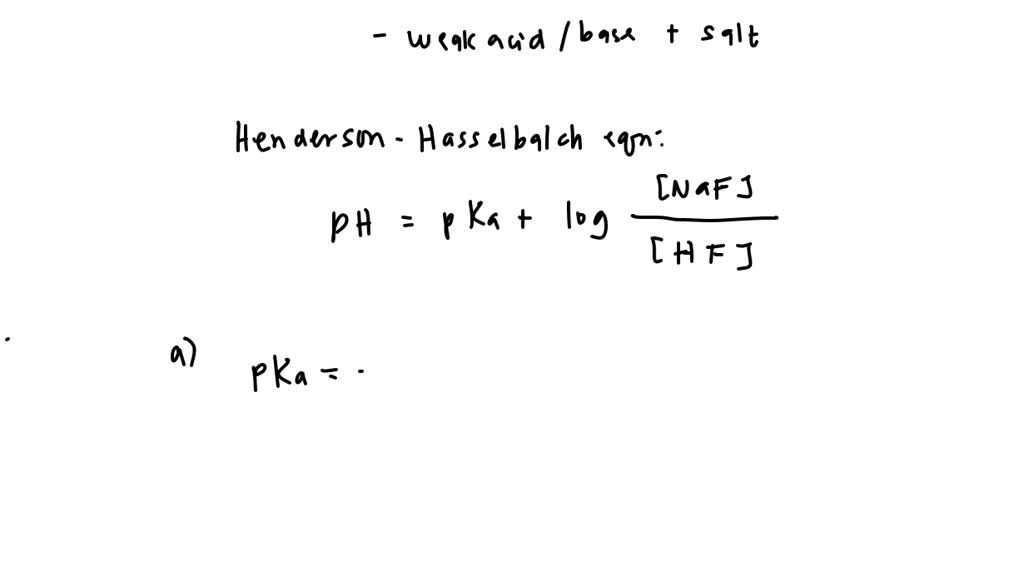 - weak acid / base + salt
Henderson - Hasselbalch eqn:
pH = pKa + log [NaF] / [HF]
a) pKa = -